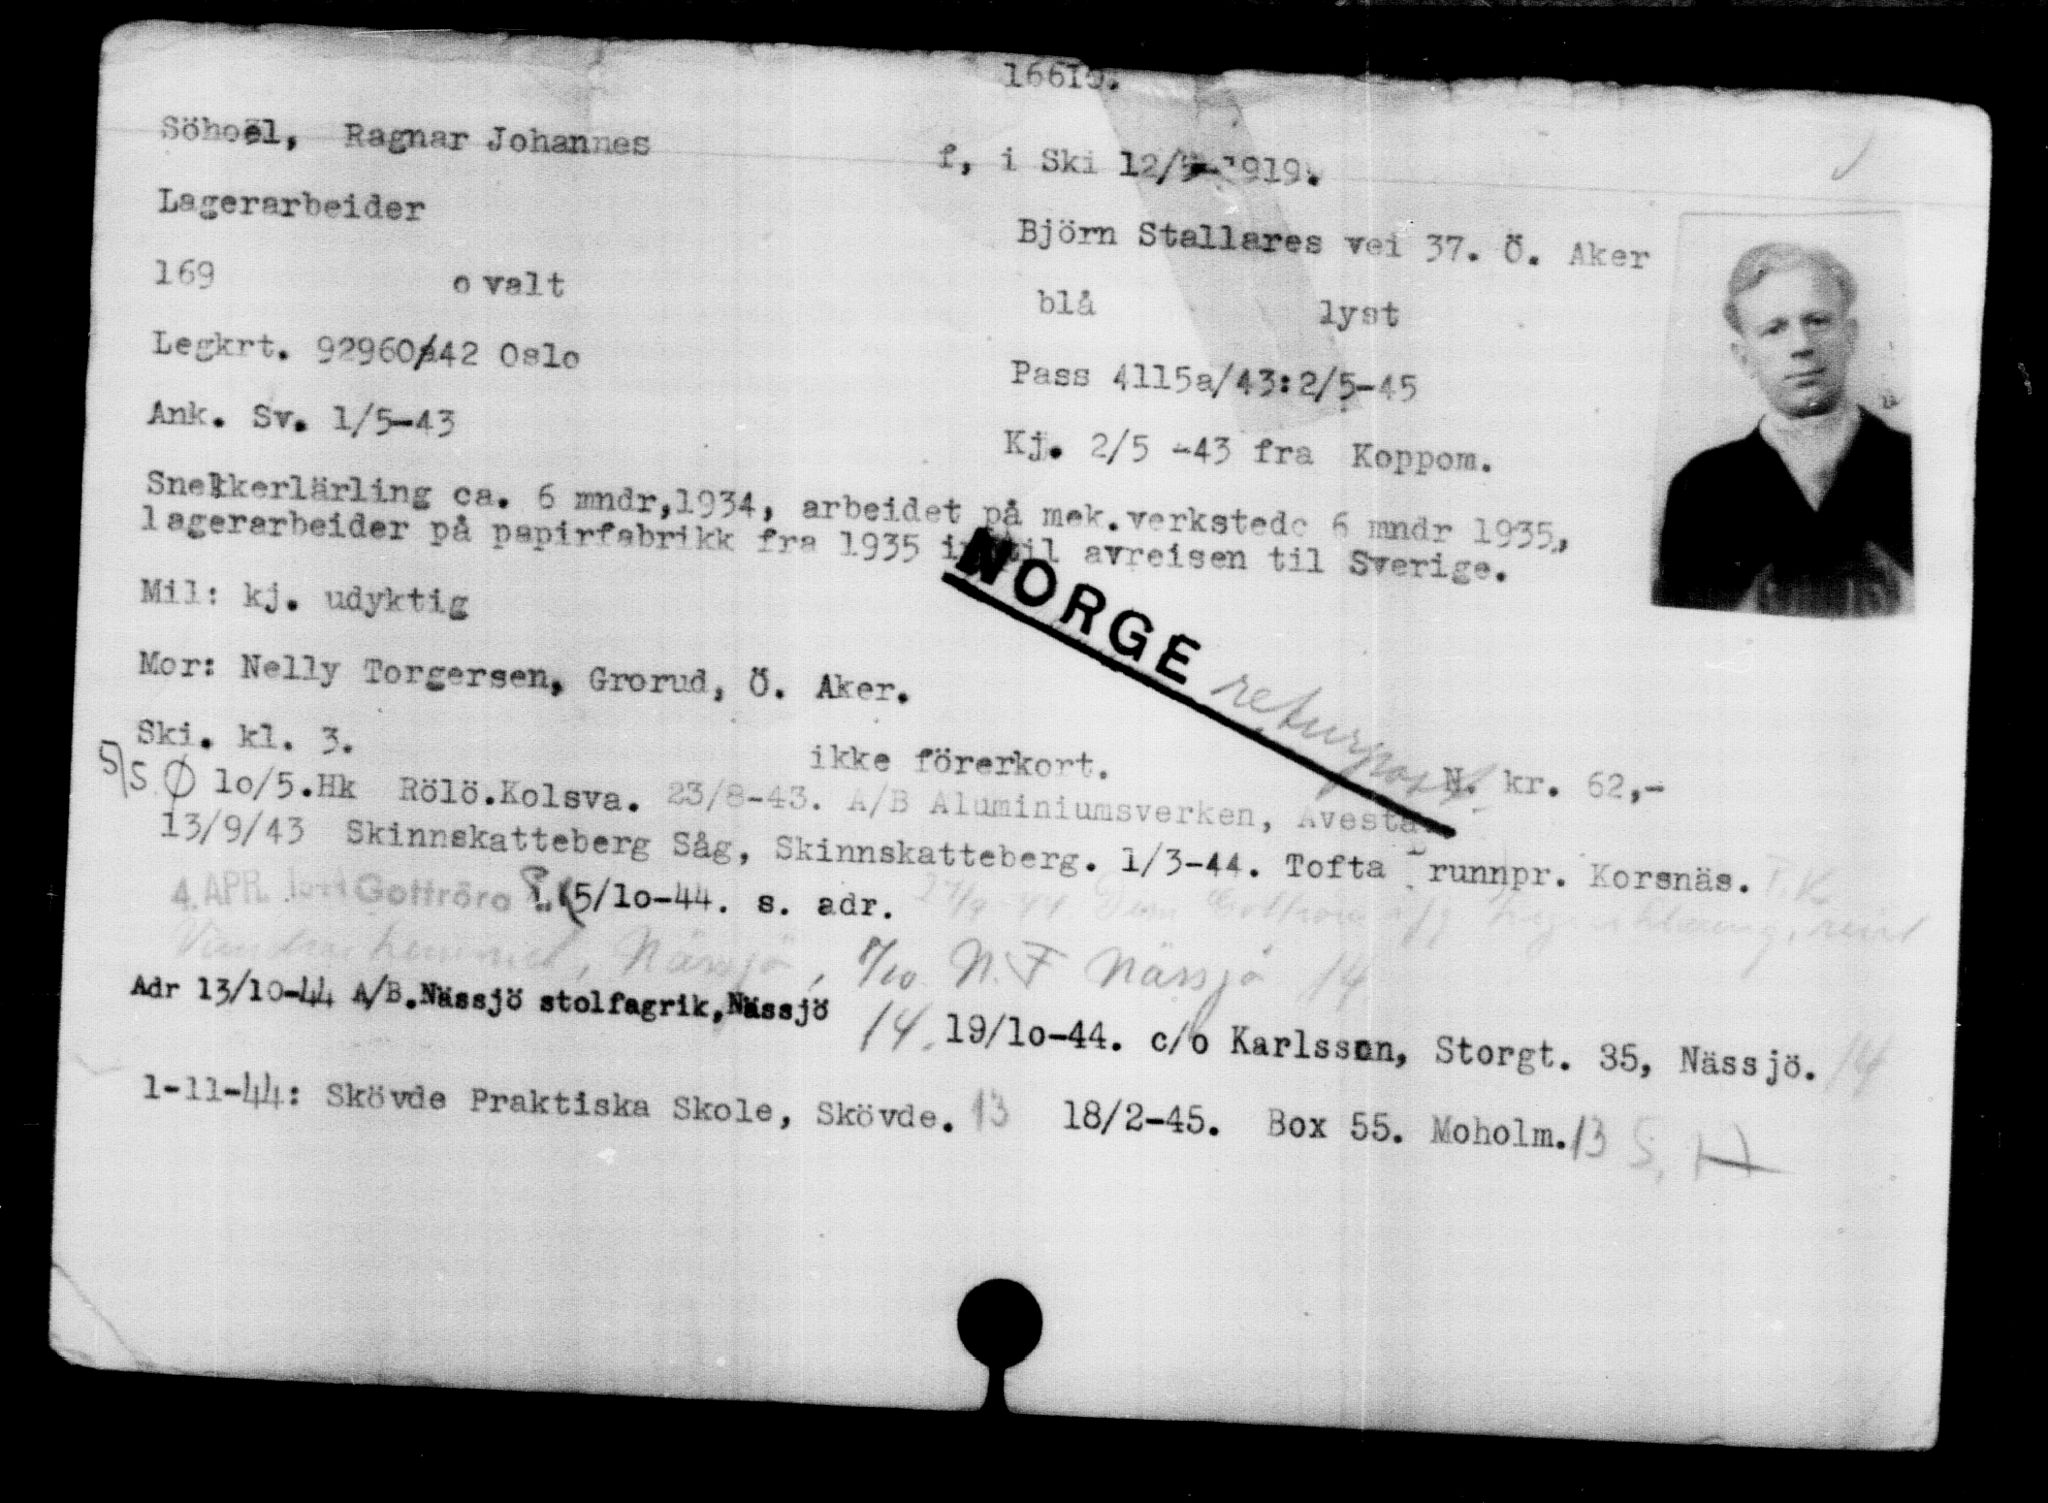 16616.
Söhoel, Ragnar Johannes f, i Ski 12/5-1919.
Lagerarbeider Björn Stallares vei 37. Ö. Aker
169 ovalt blå lyst
Legkrt. 92960/42 Oslo Pass 4115a/43:2/5-45
Ank. Sv. 1/5-43 Kj. 2/5 -43 fra Koppom.
Snekkerlärling ca. 6 mndr,1934, arbeidet på mek.verkstede 6 mndr 1935,
lagerarbeider på papirfabrikk fra 1935 inntil avreisen til Sverige.
Mil: kj. udyktig
NORGE returpost
Mor: Nelly Torgersen, Grorud, Ö. Aker.
Ski. kl. 3. ikke förerkort. N. kr. 62,-
5/5 Ø 10/5.Hk Rölö.Kolsva. 23/8-43. A/B Aluminiumsverken, Avesta.
13/9/43 Skinnskatteberg Såg, Skinnskatteberg. 1/3-44. Tofta runnpr. Korsnäs. F.K.
4. APR. 1944 Gottröra 5/10-44. s. adr. 27/9 44.
Nässjö, 7/10 N.F Nässjö 14
Adr 13/10-44 A/B.Nässjö stolfagrik,Nässjö 14. 19/10-44. c/o Karlsson, Storgt. 35, Nässjö. 14
1-11-44: Skövde Praktiska Skole, Skövde. 13 18/2-45. Box 55. Moholm. 13 S. H